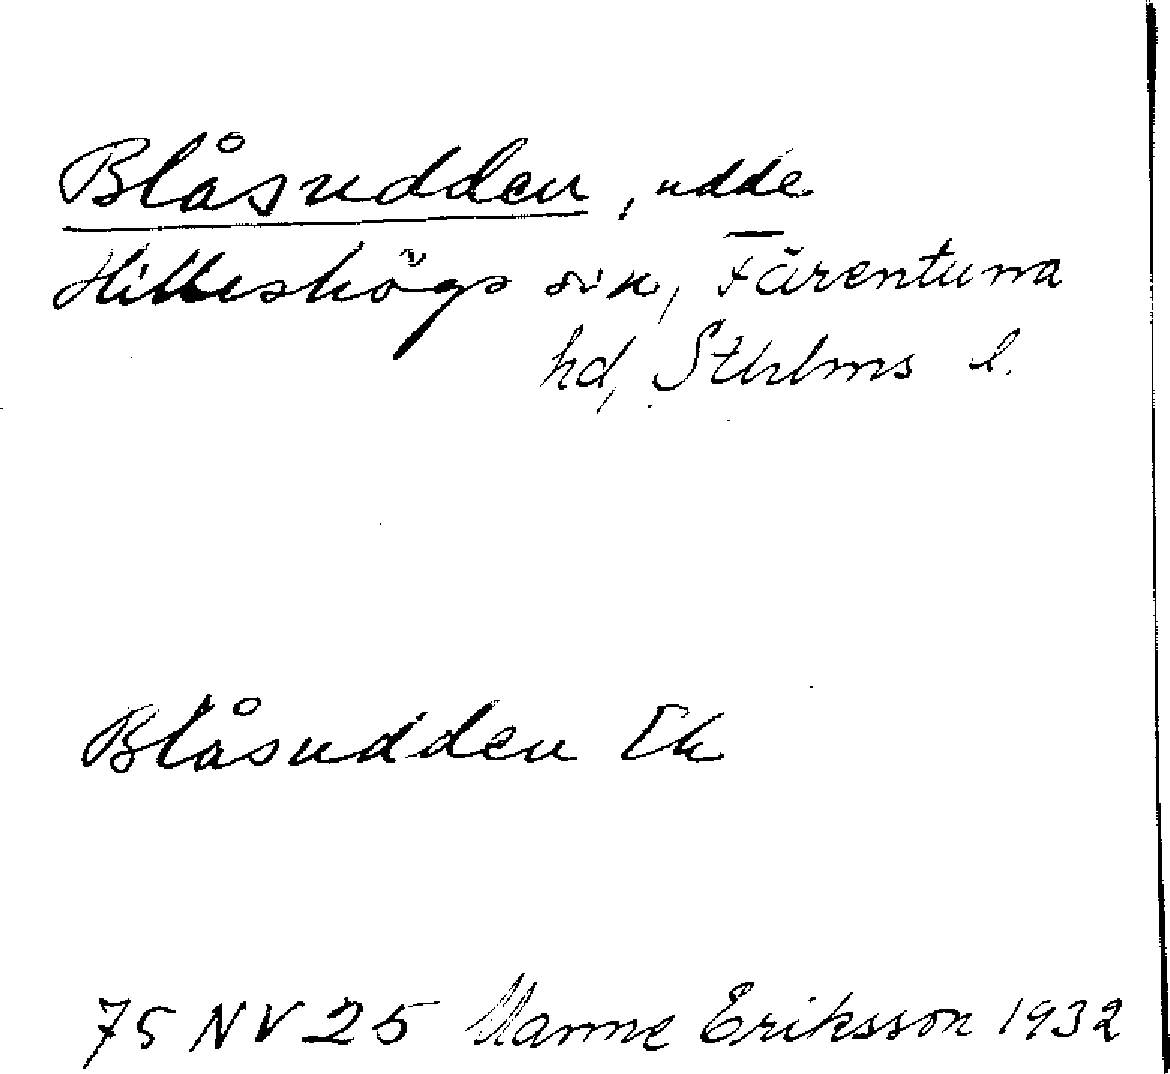 Blåsudden, udde
Hilleshögs sn, Färentuna
hd, Sthlms l.
Blåsudden Ek
75 NV 25 Manne Eriksson 1932